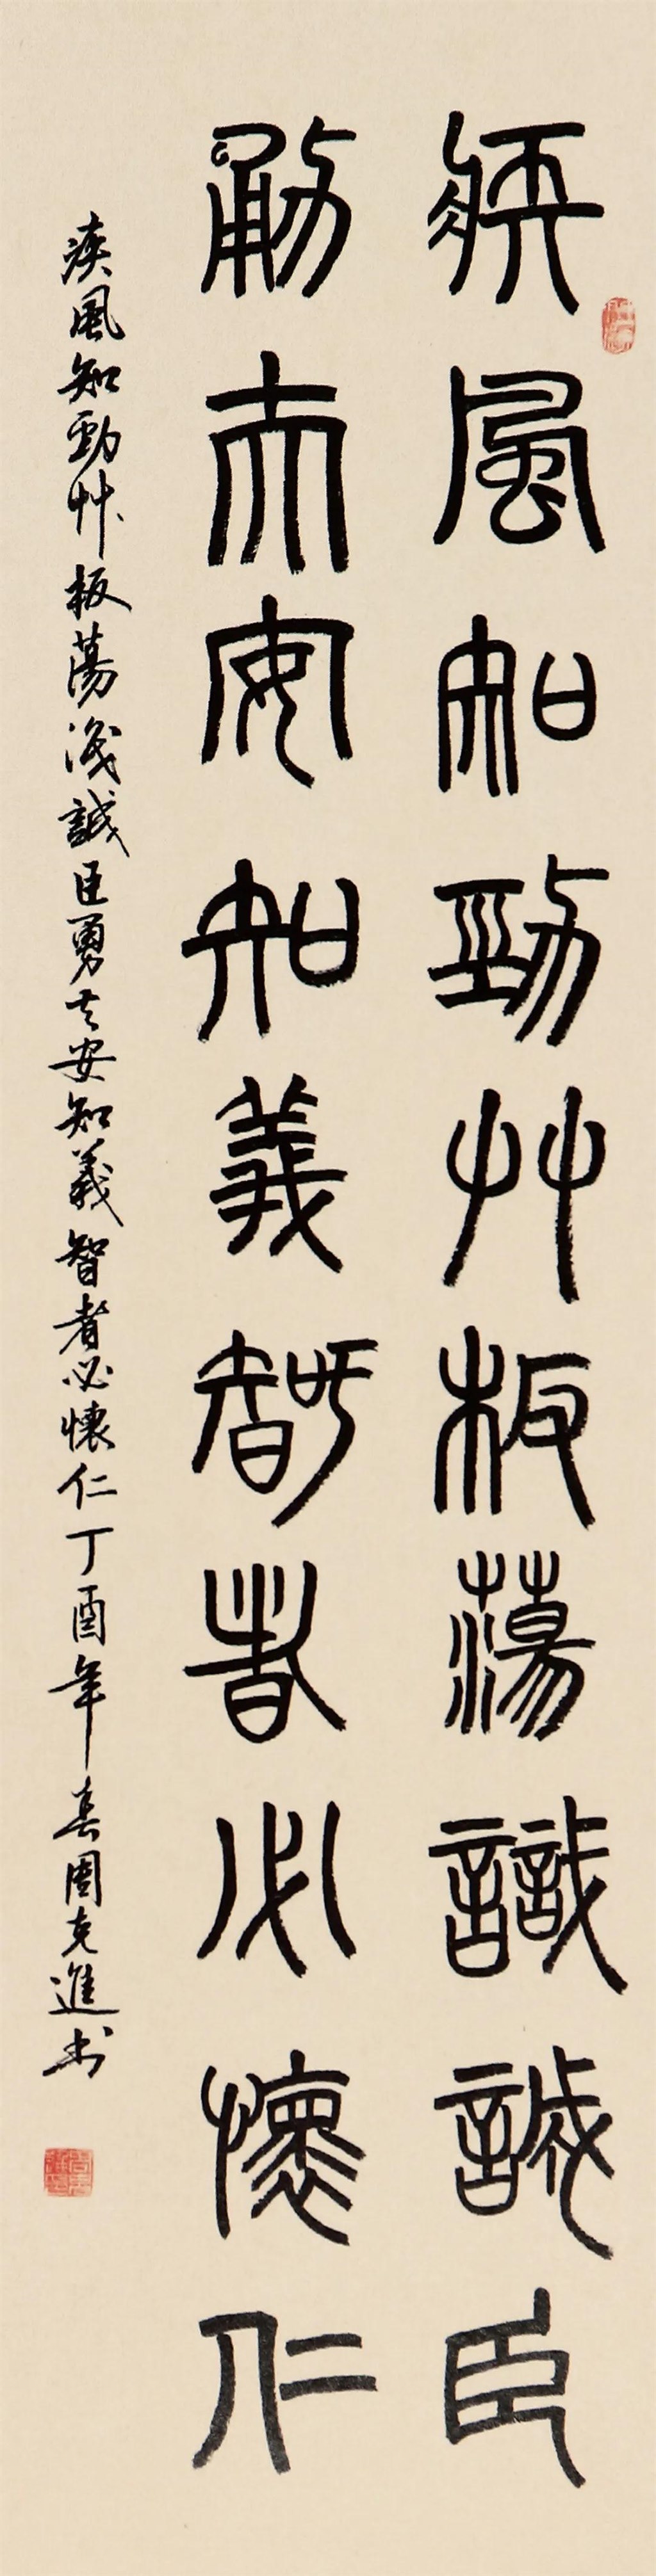 疾風知勁艸板蕩識誠臣
勇夫安知義智者必懷仁
疾風知勁艸板蕩識誠臣勇夫安知義智者必懷仁丁酉年春周克進书